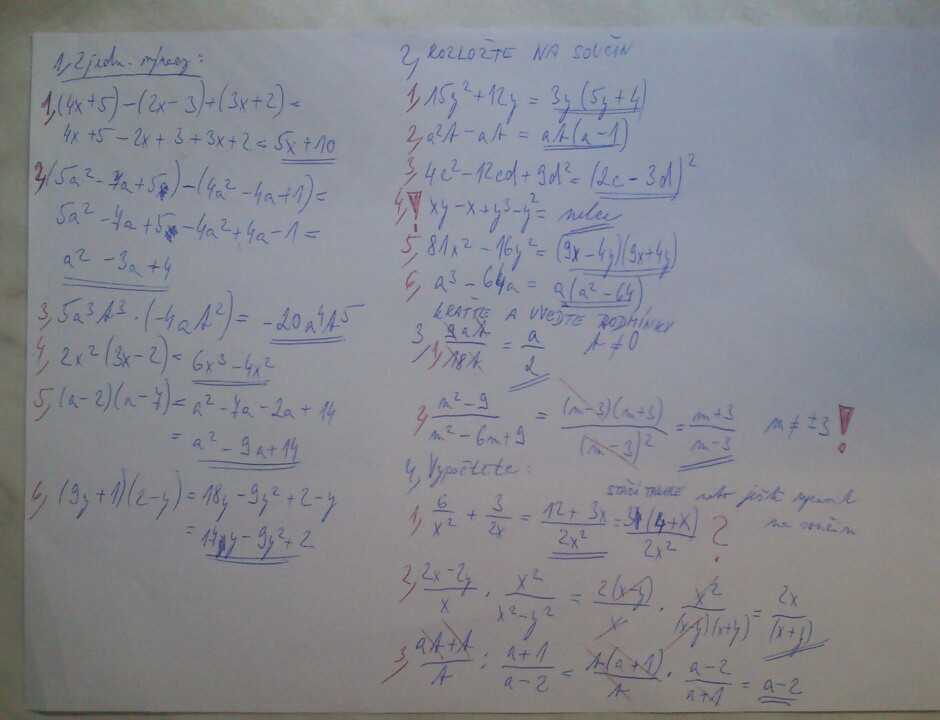 1, Zjedn. výrazy:
1, (4x+5)-(2x-3)+(3x+2)=
4x+5-2x+3+3x+2=5x+10
2, (5a²-7a+5)-(4a²-4a+1)=
5a²-7a+5-4a²+4a-1=
a²-3a+4
3, 5a³b³·(-4ab²)=-20a⁴b⁵
4, 2x²(3x-2)=6x³-4x²
5, (a-2)(a-7)=a²-7a-2a+14
=a²-9a+14
6, (9y+1)(2-y)=18y-9y²+2-y
=17y-9y²+2
2, ROZLOŽTE NA SOUČIN
1, 15y²+12y=3y(5y+4)
2, a²b-ab=ab(a-1)
3, 4c²-12cd+9d²=(2c-3d)²
4, ! xy-x+y³-y²=nelze
5, 81x²-16y²=(9x-4y)(9x+4y)
6, a³-64a=a(a²-64)
3, KRAŤTE A UVEĎTE PODMÍNKY
1, 9ab/18b=a/2 b≠0
2, m²-9/m²-6m+9=(m-3)(m+3)/(m-3)²=m+3/m-3 m≠±3 !
4, Vypočtěte:
STAČÍ TAKHLE nebo ještě upravit na součin
1, 6/x²+3/2x=12+3x/2x²=3(4+x)/2x² ?
2, 2x-2y/x·x²/x²-y²=2(x-y)/x·x²/(x-y)(x+y)=2x/(x+y)
3, ab+b/b:a+1/a-2=b(a+1)/b·a-2/a+1=a-2